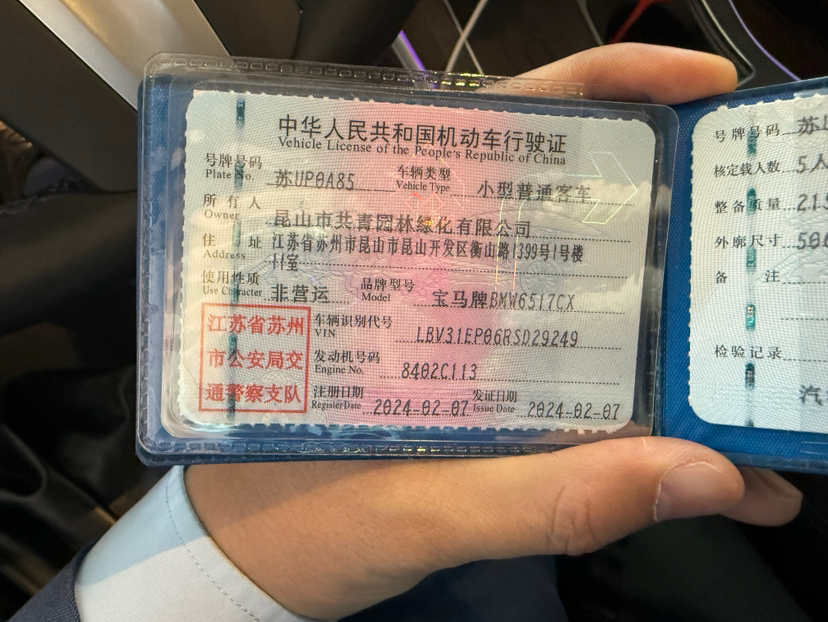 中华人民共和国机动车行驶证
Vehicle License of the People's Republic of China
号牌号码 Plate No. 苏UP0A85 车辆类型 Vehicle Type 小型普通客车
所有人 Owner 昆山市共青园林绿化有限公司
住址 Address 江苏省苏州市昆山市昆山开发区衡山路1399号1号楼
11室
使用性质 Use Character 非营运 品牌型号 Model 宝马牌BMW6517CX
江苏省苏州
市公安局交
通警察支队
车辆识别代号 VIN LBV31EP06RSD29249
发动机号码 Engine No. 8402C113
注册日期 Register Date 2024-02-07 发证日期 Issue Date 2024-02-07
号牌号码 苏
核定载人数 5人
整备质量 215
外廓尺寸 506
备注
检验记录
汽